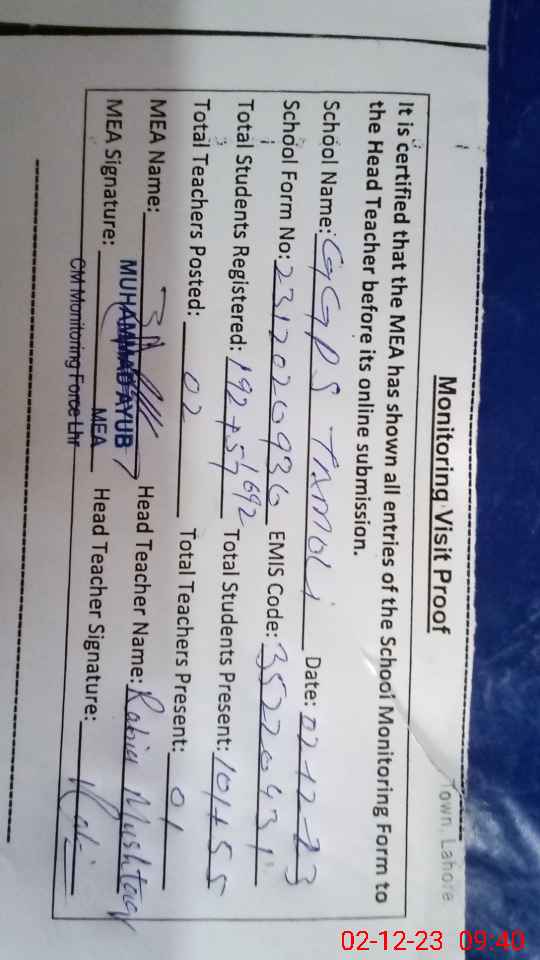 Town, Lahore
Monitoring Visit Proof
It is certified that the MEA has shown all entries of the School Monitoring Form to
the Head Teacher before its online submission.
School Name: GGPS TAMOLI Date: 02-12-23
School Form No: 2312020936 EMIS Code: 35220431
Total Students Registered: 192+54 Total Students Present: 101+55
Total Teachers Posted: 02 Total Teachers Present: 01
MEA Name: MUHAMMAD AYUB Head Teacher Name: Rabia Mushtaq
MEA Signature: MEA Head Teacher Signature:
CM Monitoring Force Lhr
02-12-23 09:40